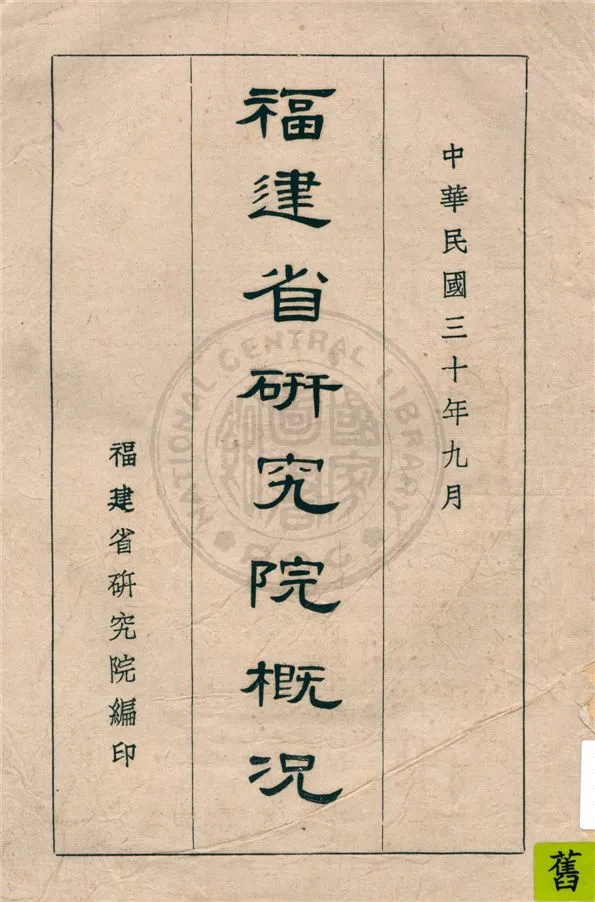 中華民國三十年九月
福建省研究院概况
福建省研究院編印
NATIONAL CENTRAL LIBRARY
舊